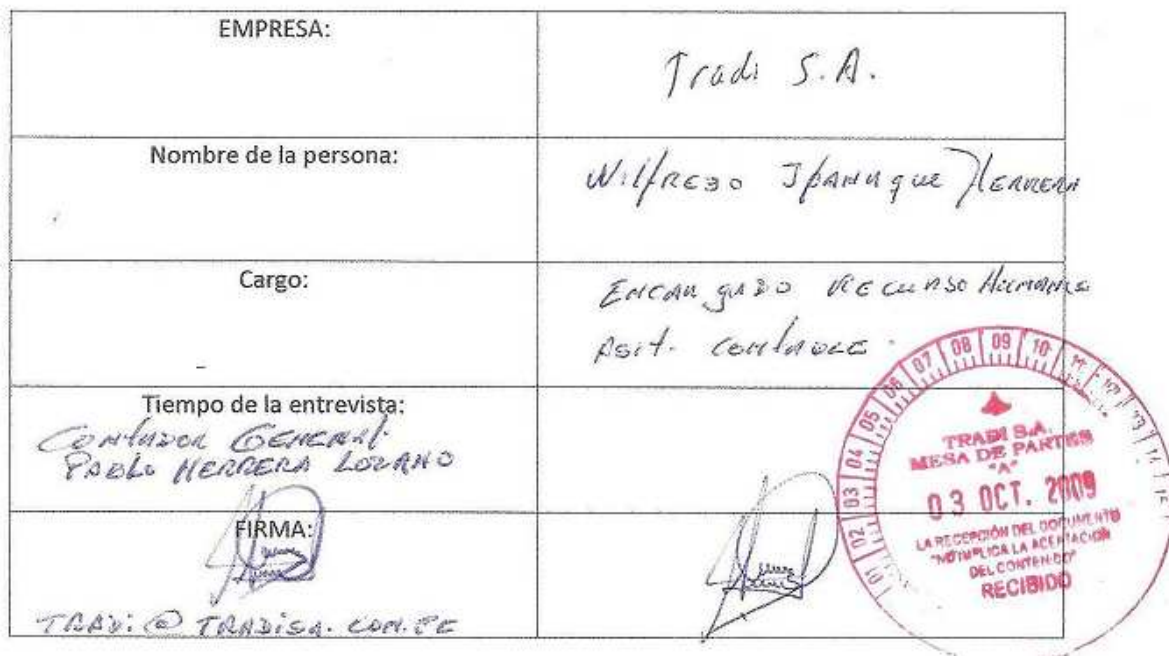 EMPRESA:
Tradi S.A.
Nombre de la persona:
Wilfredo Ipanaque Herrera
Cargo:
Encargado Recurso Humano
Asit. Contable.
Tiempo de la entrevista:
Contador General.
PABLO HERRERA LOZANO
FIRMA:
TRADi@TRADiSA.COM.PE
01 02 03 04 05 06 07 08 09 10 11 12 13 14
TRADI S.A.
MESA DE PARTES
"A"
03 OCT. 2009
LA RECEPCIÓN DEL DOCUMENTO
"NO IMPLICA LA ACEPTACIÓN
DEL CONTENIDO"
RECIBIDO